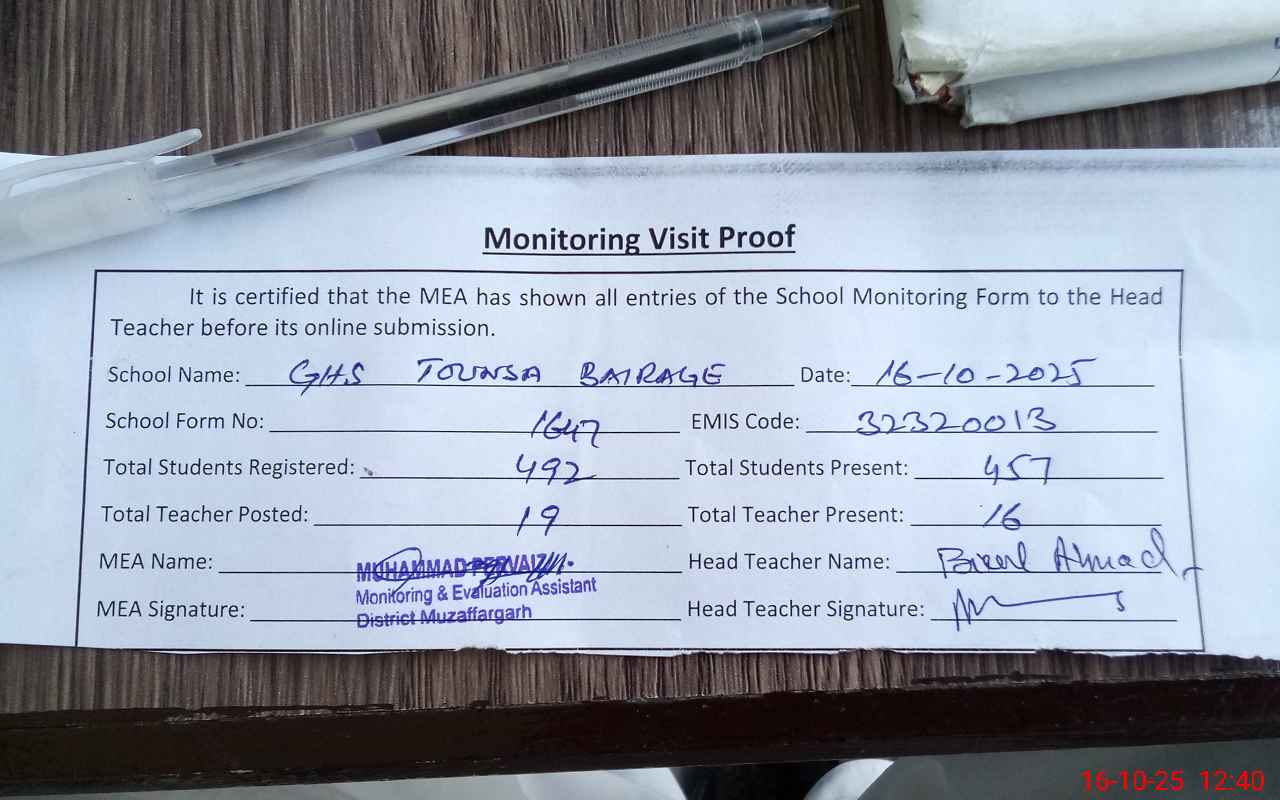 Monitoring Visit Proof
It is certified that the MEA has shown all entries of the School Monitoring Form to the Head
Teacher before its online submission.
School Name: GHS TOUNSA BAIRAGE Date: 16-10-2025
School Form No: 1647 EMIS Code: 32320013
Total Students Registered: 492 Total Students Present: 457
Total Teacher Posted: 19 Total Teacher Present: 16
MEA Name: MUHAMMAD PERVAIZ Head Teacher Name: Ahmad
Monitoring & Evaluation Assistant
MEA Signature: District Muzaffargarh Head Teacher Signature:
16-10-25 12:40